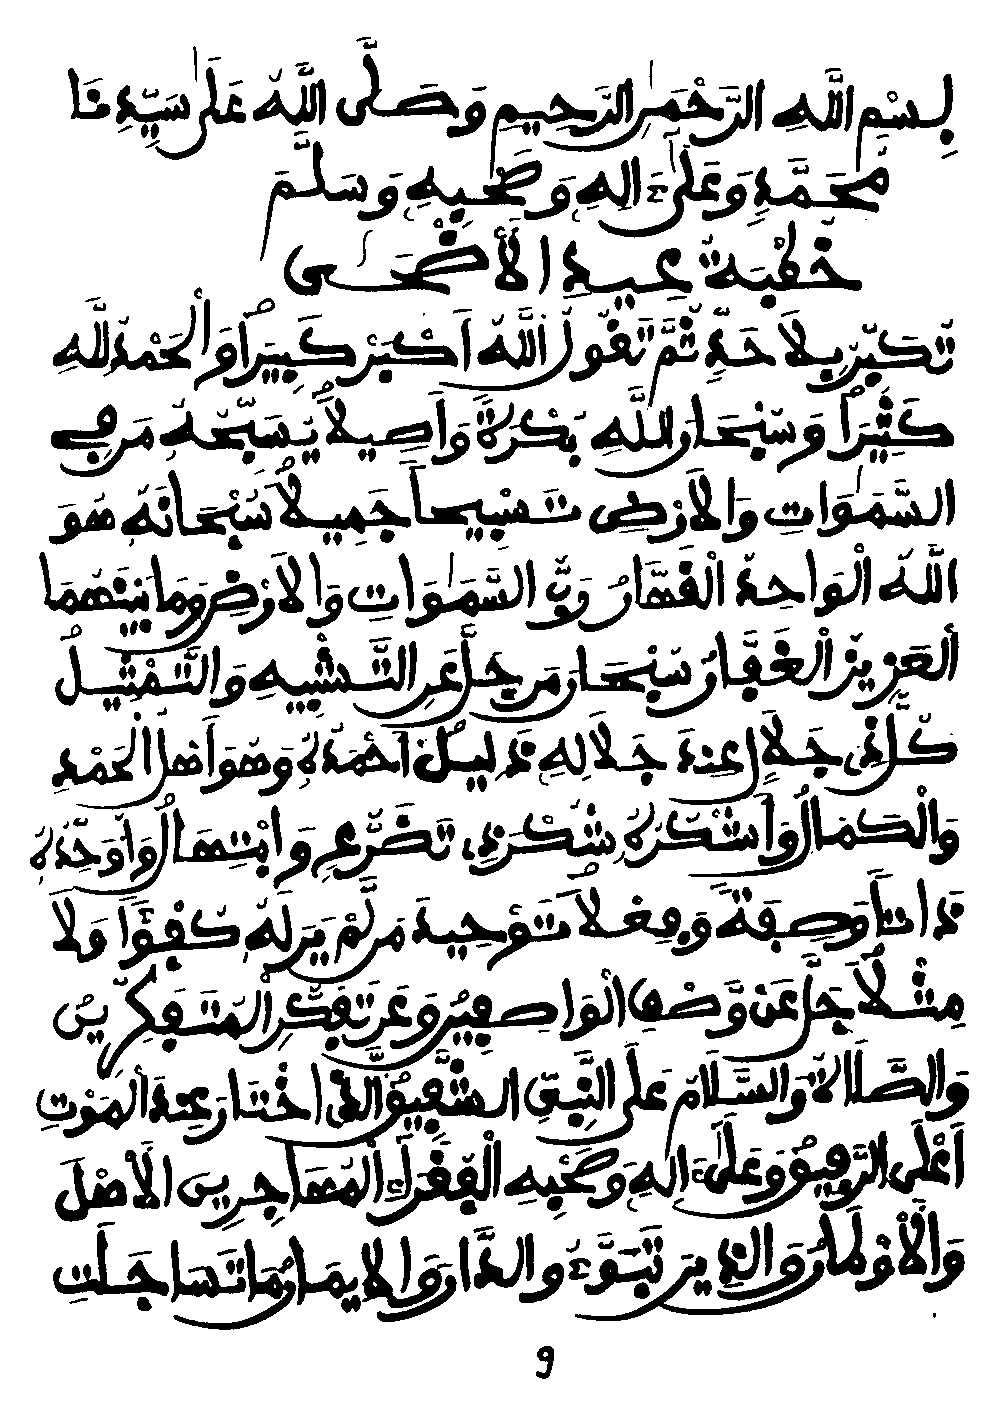 بِسْمِ اللَّهِ الرَّحْمَٰنِ الرَّحِيمِ وَصَلَّى اللَّهُ عَلَىٰ سَيِّدِنَا
مُحَمَّدٍ وَعَلَىٰ ءَالِهِ وَصَحْبِهِ وَسَلَّمَ
خُطْبَةُ عِيدِ الْأَضْحَى
تُكَبِّرُ بِلَا حَدٍّ ثُمَّ تَقُولُ اللَّهُ أَكْبَرُ كَبِيرًا وَالْحَمْدُ لِلَّهِ
كَثِيرًا وَسُبْحَانَ اللَّهِ بُكْرَةً وَأَصِيلًا يُسَبِّحُهُ مَن فِي
السَّمَٰوَاتِ وَالْأَرْضِ تَسْبِيحًا جَمِيلًا سُبْحَانَهُ هُوَ
اللَّهُ الْوَاحِدُ الْقَهَّارُ رَبُّ السَّمَٰوَاتِ وَالْأَرْضِ وَمَا بَيْنَهُمَا
الْعَزِيزُ الْغَفَّارُ سُبْحَانَ مَن جَلَّ عَنِ التَّشْبِيهِ وَالتَّمْثِيلُ
كُلُّ ذِي جَلَالٍ عِندَ جَلَالِهِ ذَلِيلٌ أَحْمَدُهُ وَهُوَ أَهْلُ الْحَمْدِ
وَالْكَمَالُ وَأَشْكُرُهُ شُكْرَ ذِي تَضَرُّعٍ وَابْتِهَالُ وَأُوَحِّدُهُ
ذَاتًا وَصِفَةً وَفِعْلًا تَوْحِيدَ مَن لَّمْ يَرَ لَهُ كُفُؤًا وَلَا
مِثْلًا جَلَّ عَنْ وَصْفِ الْوَاصِفِينَ وَعَن تَفَكُّرِ الْمُتَفَكِّرِينُ
وَالصَّلَاةُ وَالسَّلَامُ عَلَى النَّبِيِّ الشَّفِيقِ الَّذِي اخْتَارَ عِندَ الْمَوْتِ
أَعْلَى الرَّفِيقُ وَعَلَىٰ ءَالِهِ وَصَحْبِهِ الْفُقَرَاءِ الْمُهَاجِرِينَ الْأَهْلَ
وَالْأَوْطَانُ وَالَّذِينَ تَبَوَّءُو الدَّارَ وَالْإِيمَانُ مَا تَسَاجَلَتِ
9